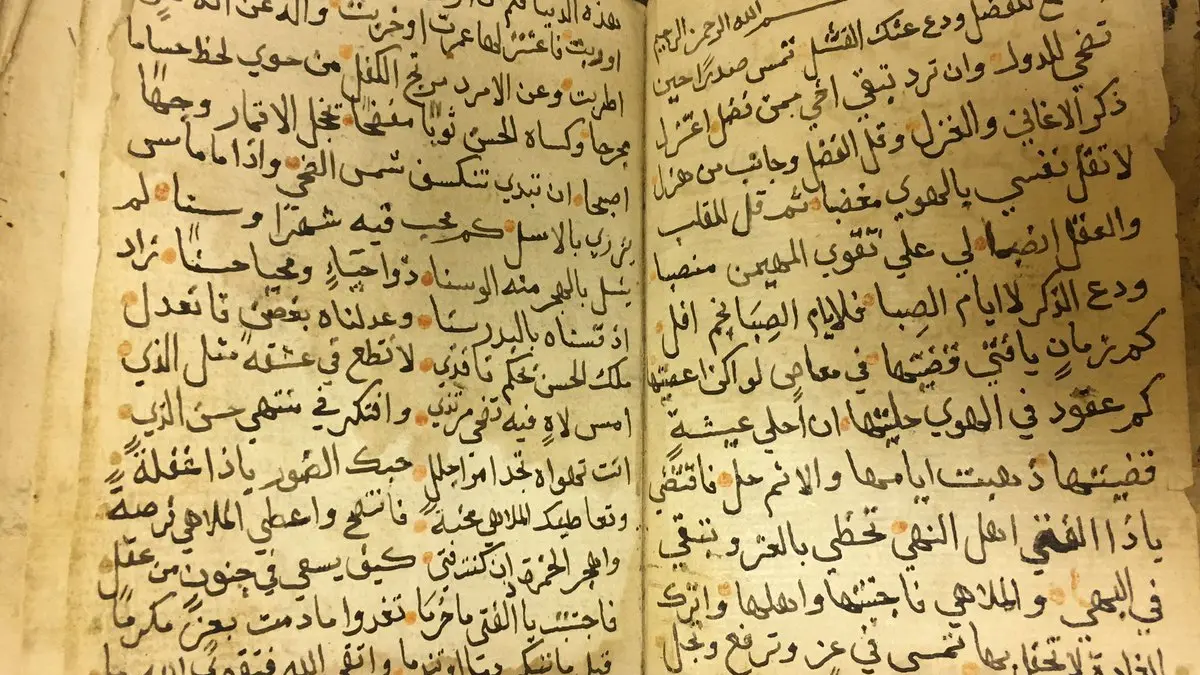 بسم الله الرحمن الرحيم
للفضل ودع عنك الفشل تمس صدرا حين
تضحي للدول وان ترد تبقي اخي ممن فضل اعتزل
ذكر الاغاني والغزل وقل الفصل وجانب من هزل
لا تقل نفسي بالهوي مغضبا ثم قل للقلب
والعقل انصبا لي علي تقوي المهيمن منصبا
ودع الذكر لايام الصبا فلايام الصبا نجم افل
كم زمان يافتي قضيتها في معاصي لو اكن اعصيتها
كم عقود في الهوي حليتها ان احلي عيشة
قضيتها ذهبت ايامها والاثم حل فاقتفي
ياذا الفتي اهل النهي تحظي بالعز وتبقي
في البهي والملاهي فاجتنبها واهلها واترك
الغادة لا تحفل بها تمسي في عز وترفع وتجل
بهذه الدنيا فكم
فاعتزلها عمرت او خربت واله عن اله
اطربت وعن الامرد مرتج الكفل من حوي لحظ حساما
مجرحا وكساه الحسن ثوبا مفضحا تخجل الاقمار وجها
اصبحا ان تبدي تنكسف شمس الضحي واذا ما ماس
يزري بالاسل كم محب فيه شهرا وسنا لم
ينل بالهجر منه الوسنا ذو ومحيا حسنا زاد
اذ قسناه بالبدر سنا وعدلناه بغصن فاعتدل
ملك الحسن تحكم لا تطع في عشقه مثل الذي
امس لاه فيه تضحي وافتكر في منتهي حسن الذي
انت تهواه تجد امرا جلل حبك الصور ياذا غفلة
وتعاطيك الملاهي محنة فانتهج واعطي الملاهي فرصة
واهجر الخمرة ان كنت فتي كيف يسعي في جنون من عقل
فاجتنب يا الفتي ما حرما تغدوا ما دمت بعز مكرما
قبل واتقي الله فتقوي الله ما